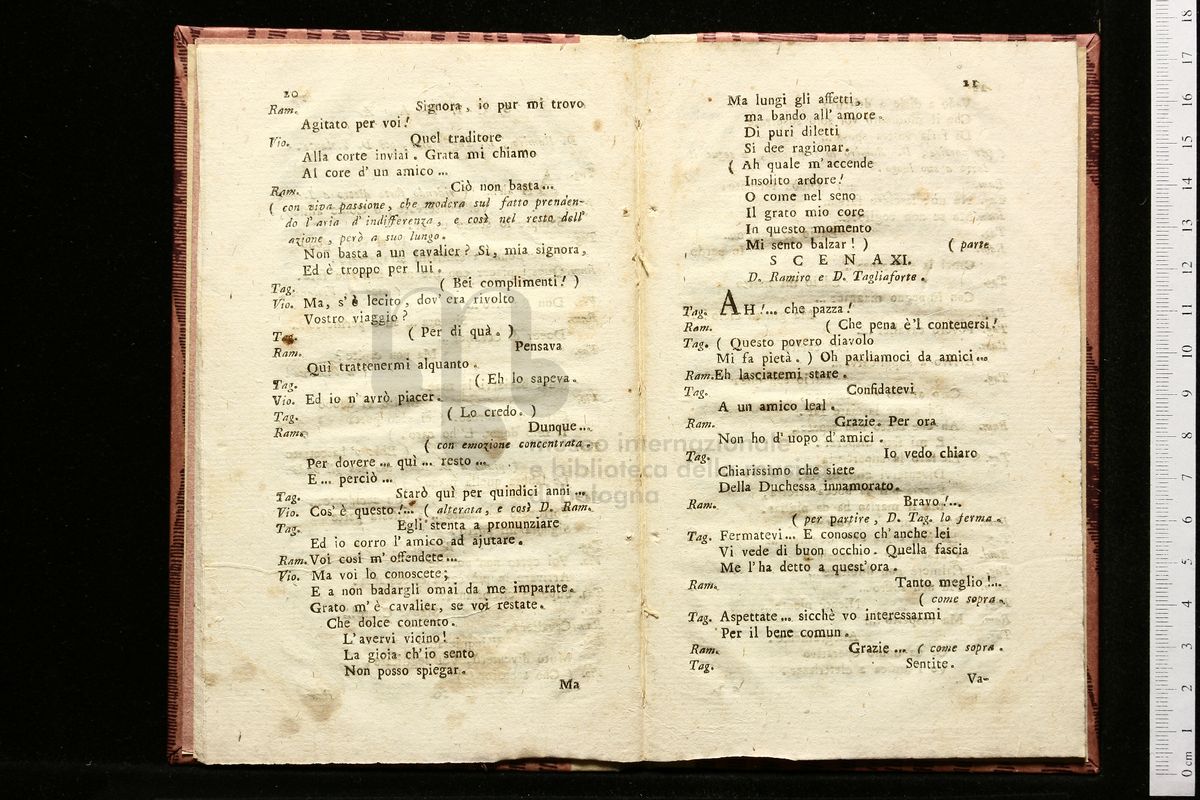 20
Ram. Signora, io pur mi trovo
Agitato per voi!
Vio. Quel traditore
Alla corte inviai. Grata mi chiamo
Al core d' un amico ...
Ram. Ciò non basta ...
( con viva passione, che modera sul fatto prenden-
do l'aria d' indifferenza, e così nel resto dell'
azione, però a suo luogo.
Non basta a un cavalier? Sì, mia signora,
Ed è troppo per lui.
Tag. ( Bei complimenti! )
Vio. Ma, s' è lecito, dov' era rivolto
Vostro viaggio?
Tag. ( Per di quà. )
Ram. Pensava
Quì trattenermi alquanto.
Tag. ( Eh lo sapeva.
Vio. Ed io n' avrò piacer.
Tag. ( Lo credo. )
Ram. Dunque ...
( con emozione concentrata.
Per dovere ... quì ... resto ...
E ... perciò ...
Tag. Starò quì per quindici anni ...
Vio. Cos' è questo!... ( alterata, e così D. Ram.
Tag. Egli stenta a pronunziare
Ed io corro l' amico ad ajutare.
Ram. Voi così m' offendete ...
Vio. Ma voi lo conoscete;
E a non badargli omai da me imparate.
Grato m' è cavalier, se voi restate.
Che dolce contento.
L' avervi vicino!
La gioia ch'io sento
Non posso spiegar.
Ma
21
Ma lungi gli affetti,
ma bando all' amore.
Di puri diletti
Si dee ragionar.
( Ah quale m' accende
Insolito ardore!
O come nel seno
Il grato mio core
In questo momento
Mi sento balzar! ) ( parte
SCENA XI.
D. Ramiro e D. Tagliaforte.
Tag. AH!... che pazza!
Ram. ( Che pena è'l contenersi!
Tag. ( Questo povero diavolo
Mi fa pietà. ) Oh parliamoci da amici ...
Ram. Eh lasciatemi stare.
Tag. Confidatevi
A un amico leal.
Ram. Grazie. Per ora
Non ho d' uopo d' amici.
Tag. Io vedo chiaro
Chiarissimo che siete
Della Duchessa innamorato.
Ram. Bravo!...
( per partire, D. Tag. lo ferma.
Tag. Fermatevi ... E conosco ch' anche lei
Vi vede di buon occhio. Quella fascia
Me l' ha detto a quest' ora.
Ram. Tanto meglio!...
( come sopra.
Tag. Aspettate ... sicchè vo interessarmi
Per il bene comun.
Ram. Grazie ... ( come sopra.
Tag. Sentite.
Va-
internazionale
e biblioteca della
Bologna
0 cm 1 2 3 4 5 6 7 8 9 10 11 12 13 14 15 16 17 18